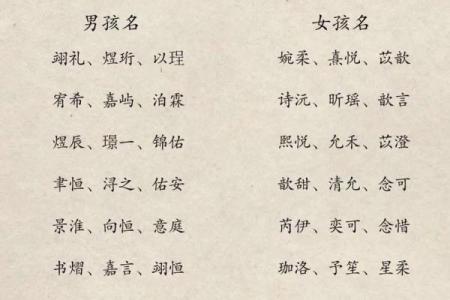 男孩名
翊礼、煜珩、以珵
宥希、嘉屿、泊霖
煜辰、璟一、锦佑
聿恒、浔之、佑安
景淮、向恒、意庭
书熠、嘉言、翊恒
女孩名
婉柔、熹悦、苡歆
诗沅、昕瑶、歆言
熙悦、允禾、苡澄
歆甜、清允、念可
芮伊、奕可、念惜
珈洛、予笙、星柔